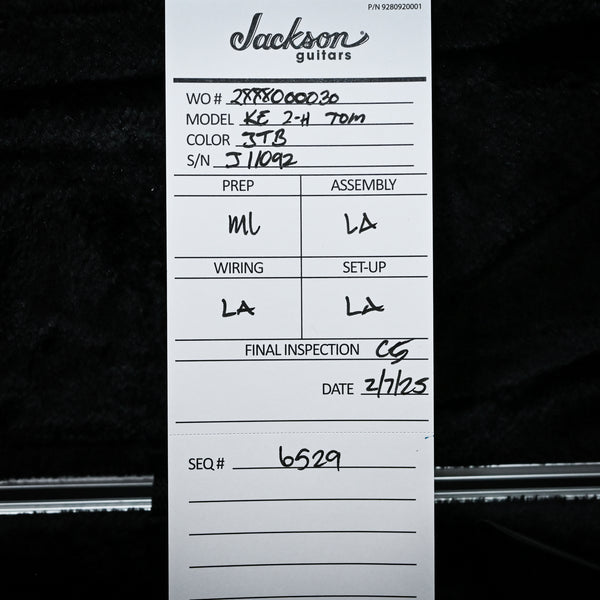 P/N 9280920001
Jackson
guitars
WO # 2888000030
MODEL KE 2-H TOM
COLOR 3TB
S/N J11092
PREP ASSEMBLY
ML LA
WIRING SET-UP
LA LA
FINAL INSPECTION CG
DATE 2/7/25
SEQ # 6529